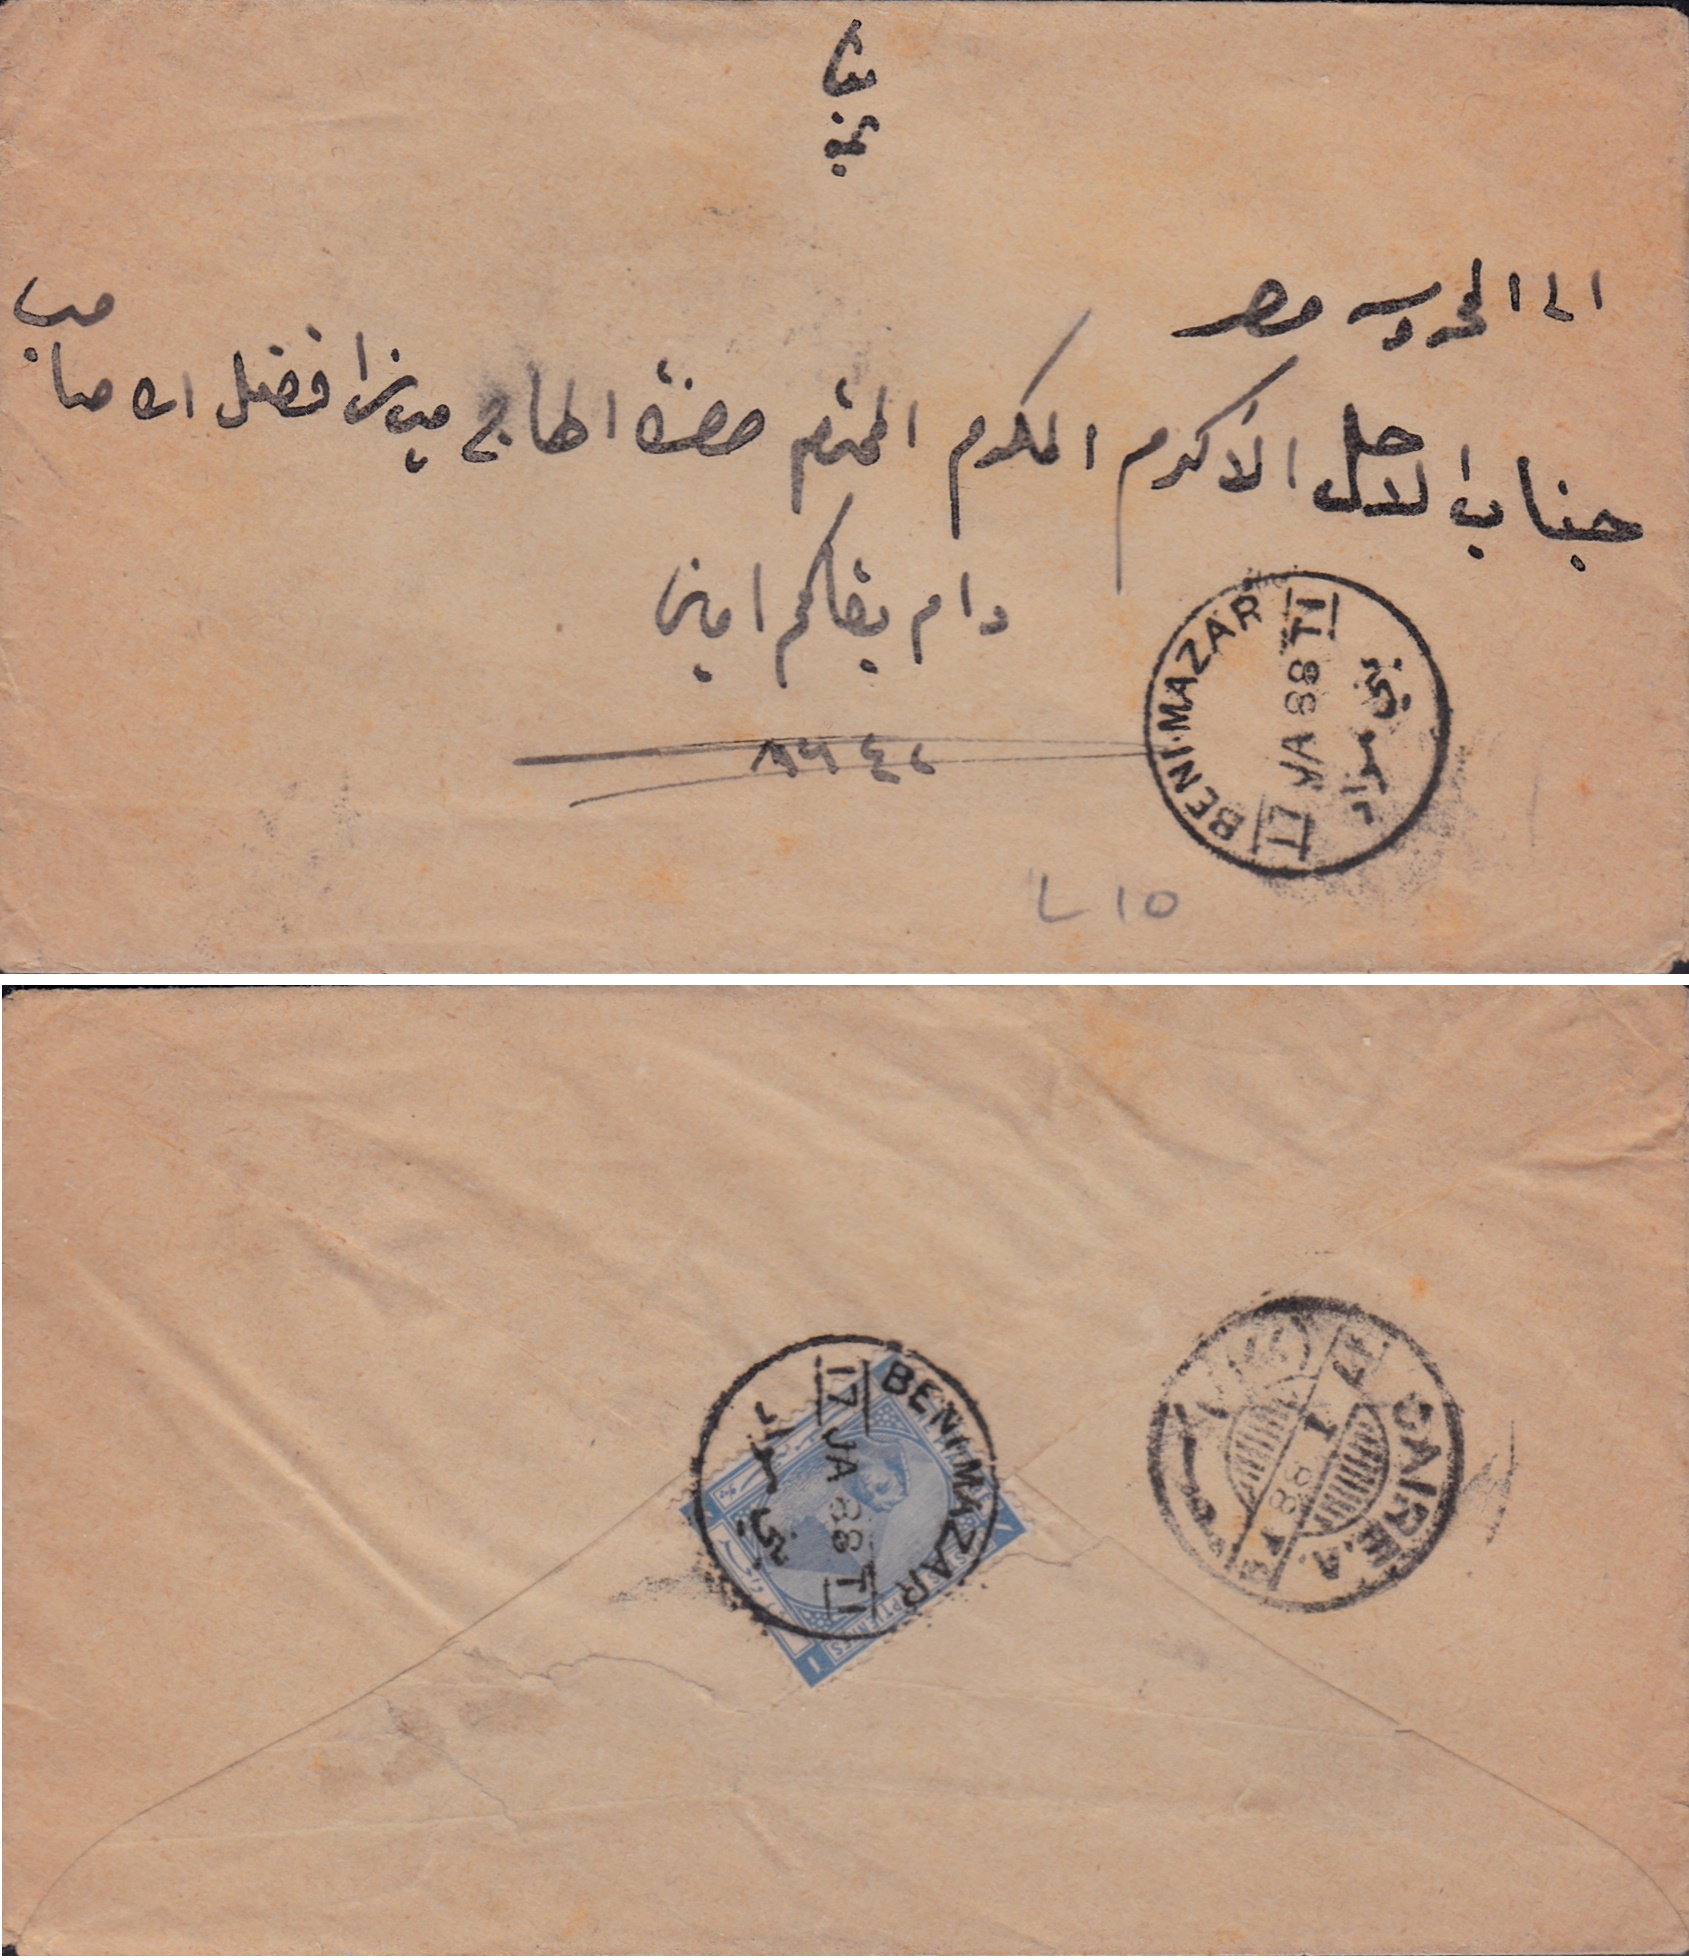 الى المحروسه مصر
جناب الاجل الأكرم المكرم المحترم حضرة الحاج ميرزا فضل الله صاحب
دام بقاكم امين
٨٦٤٢
BENI-MAZAR
17 JA 88 TI
بني مزار
L 10
BENI-MAZAR
17 JA 88 TI
بني مزار
CAIRE.A.
I 88